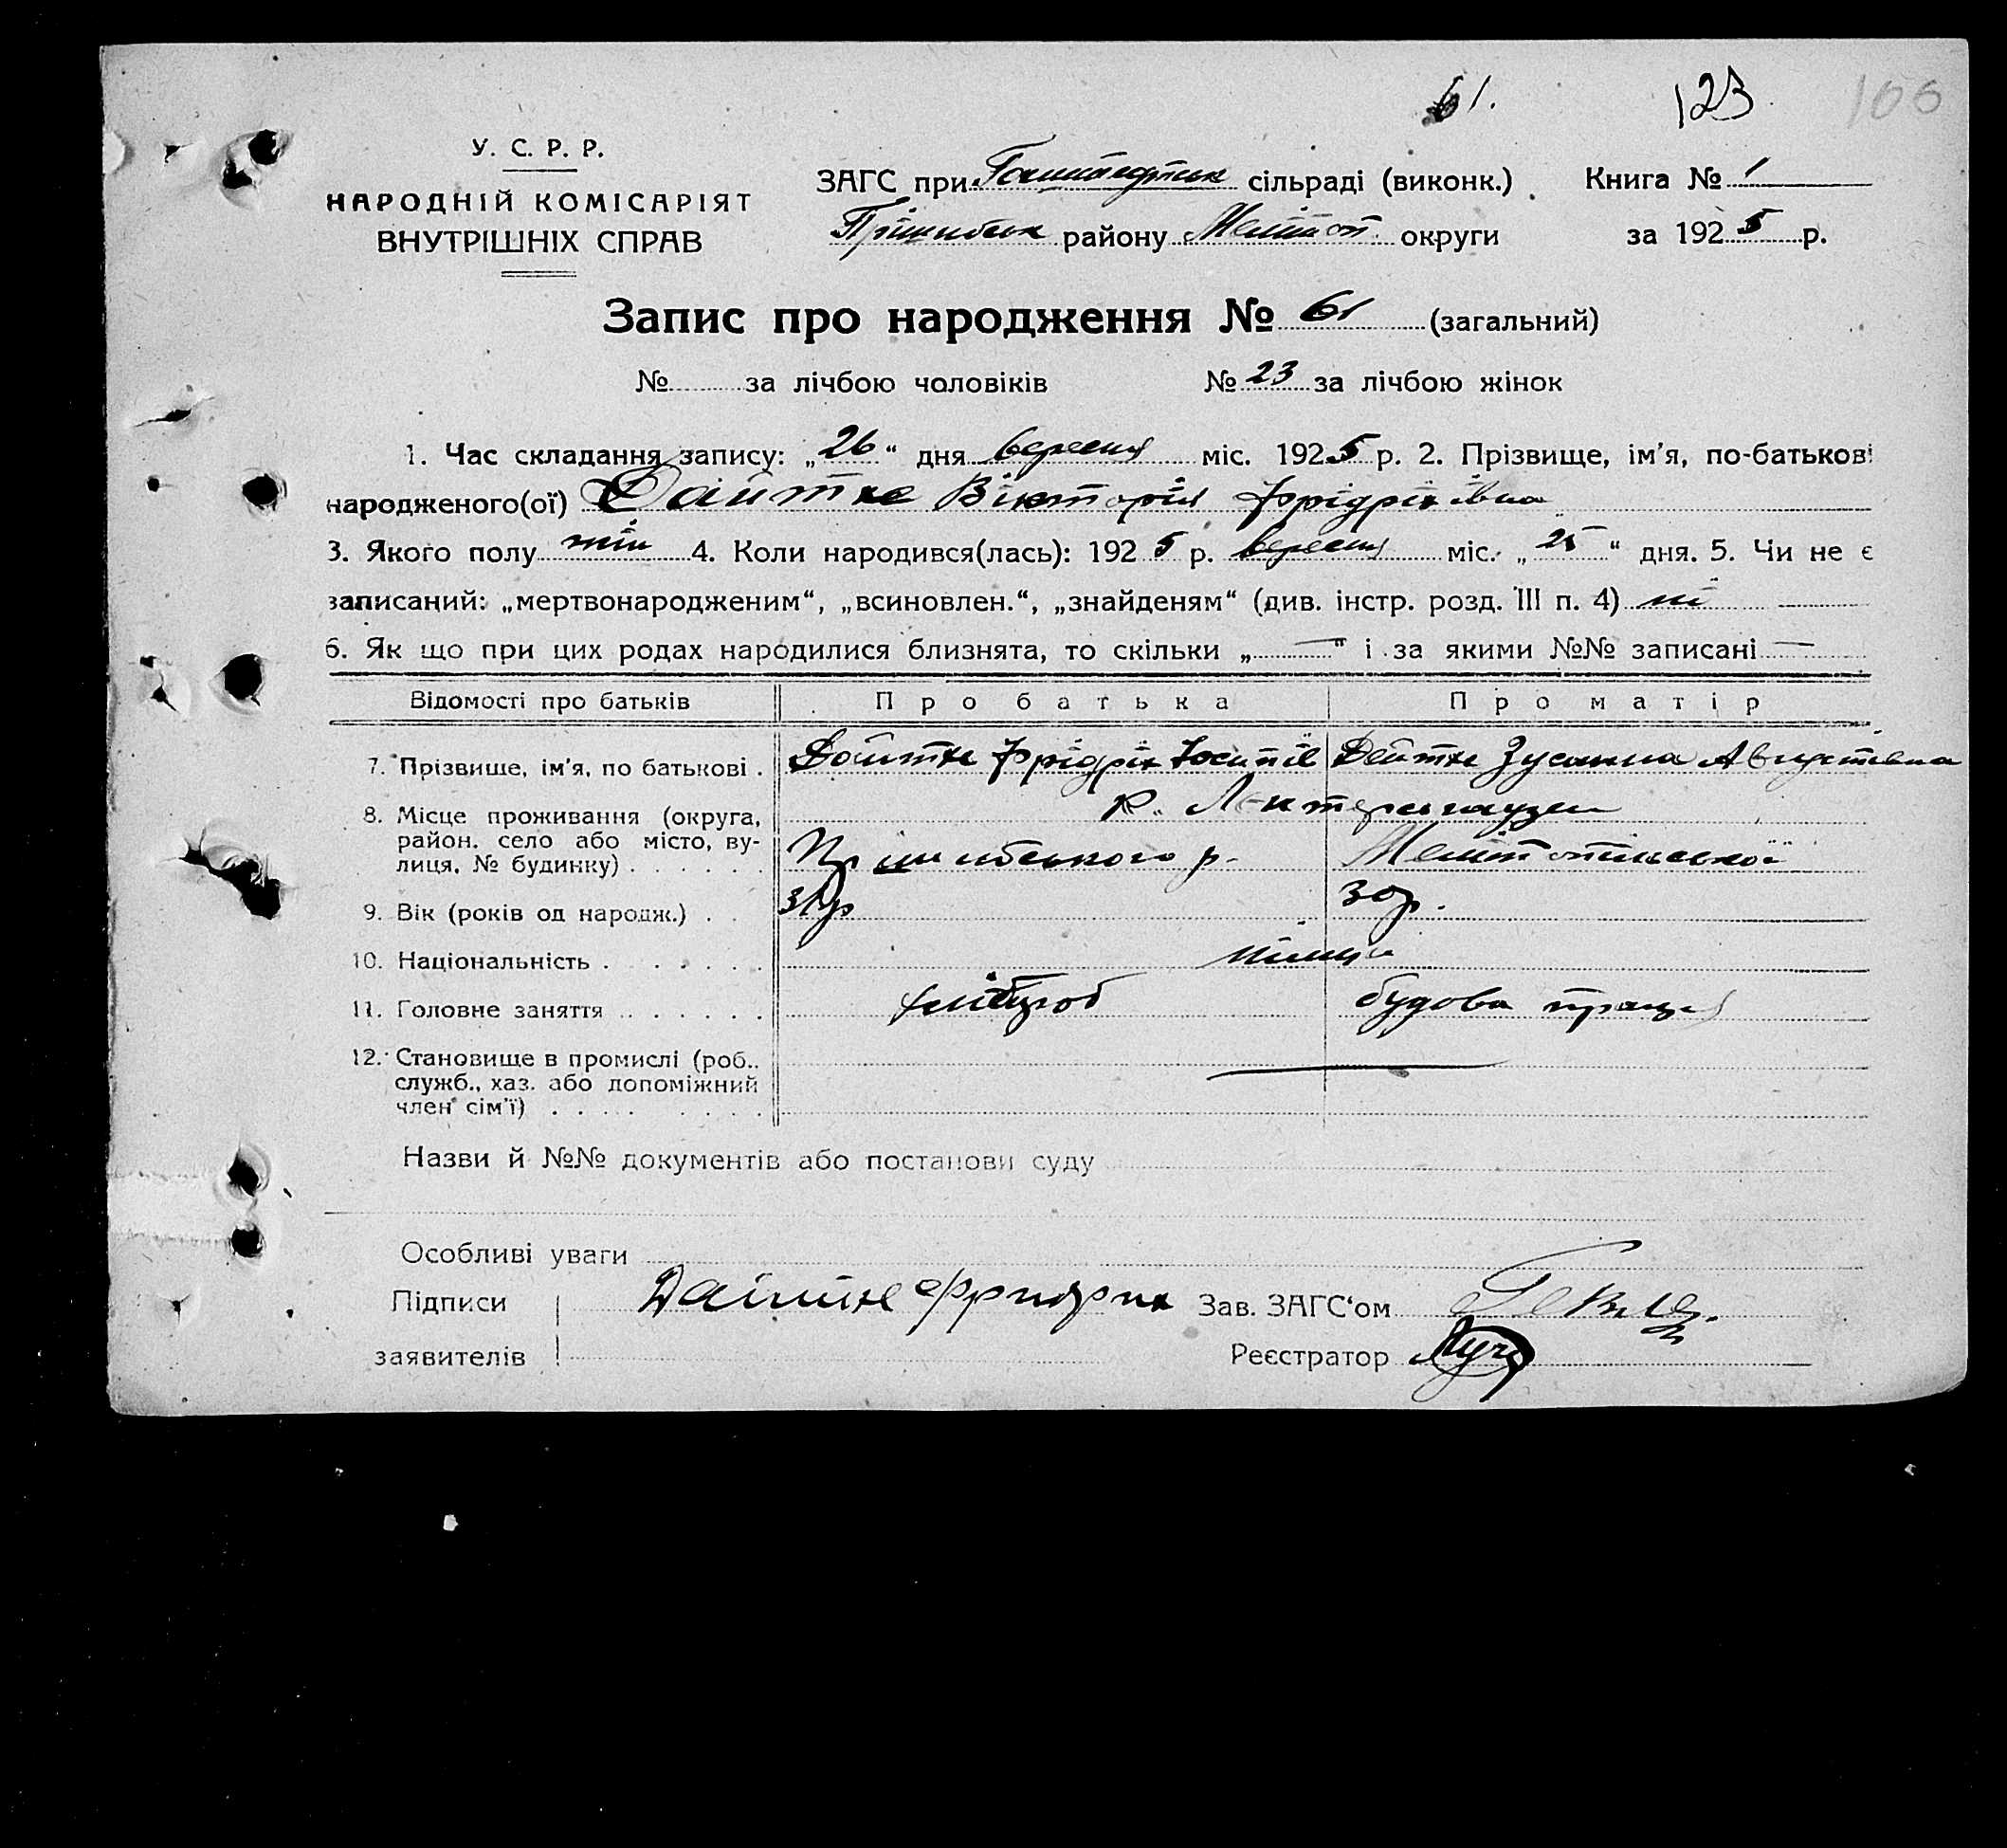 61. 123 106
У. С. Р. Р.
НАРОДНІЙ КОМІСАРІЯТ
ВНУТРІШНІХ СПРАВ
ЗАГС при сільраді (виконк.) Книга № 1
Прішибськ району Мелітоп. округи за 1925 р.
Запис про народження № 61 (загальний)
№ за лічбою чоловіків № 23 за лічбою жінок
1. Час складання запису: „26“ дня вересня міс. 1925 р. 2. Прізвище, ім'я, по-батькові
народженого(ої) Дайтхе Вікторія Фрідріхівна
3. Якого полу жін 4. Коли народився(лась): 1925 р. вересня міс. „25“ дня. 5. Чи не є
записаний: „мертвонародженим“, „всиновлен.“, „знайденям“ (див. інстр. розд. III п. 4) ні
6. Як що при цих родах народилися близнята, то скільки „—“ і за якими №№ записані —
Відомості про батьків Про батька Про матір
7. Прізвище, ім'я, по батькові . Дайтхе Фрідріх Йосипів Дейтхе Зусанна Августівна
8. Місце проживання (округа, район, село або місто, вулиця, № будинку) . . . . . . к.
Прішибського р. Мелітопільської
9. Вік (років од народж.) . . 30р.
10. Національність . . . . . . німці
11. Головне заняття . . . . . . хлібороб будова праця
12. Становище в промислі (роб., служб., хаз. або допоміжний член сім'ї) . . . . . . . . —
Назви й №№ документів або постанови суду
Особливі уваги
Підписи Дайтхе Фридрих Зав. ЗАГС‘ом
заявителів Реєстратор